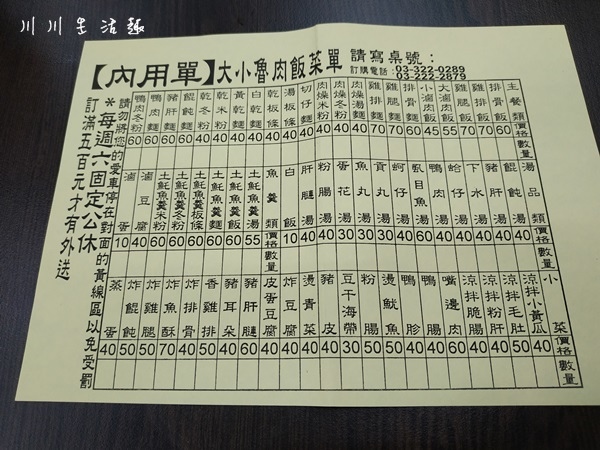 川川生活趣
【內用單】大小魯肉飯菜單 請寫桌號：
訂購電話：03-322-0289
03-322-2879
主餐類 價格 數量
排骨飯 60
雞排飯 70
雞腿飯 70
大滷肉飯 55
小滷肉飯 45
排骨麵 60
雞腿麵 70
雞排麵 70
肉燥湯麵 40
肉燥冬粉 40
肉燥米粉 40
切仔麵 40
湯板條 40
乾板條 40
白乾麵 40
黃乾麵 40
乾米粉 40
乾冬粉 40
餛飩麵 60
豬肝麵 60
鴨肉麵 60
鴨肉冬粉 60
湯品類 價格 數量
餛飩湯 40
豬肝湯 40
下水湯 40
蛤仔湯 40
鴨肉湯 40
虱目魚湯 60
蚵仔湯 40
貢丸湯 30
魚丸湯 30
蛋花湯 30
粉腸湯 40
肝腱湯 40
白飯 10
魚羹類 價格 數量
土魠魚羹湯 55
土魠魚羹麵 60
土魠魚羹板條 60
土魠魚羹冬粉 60
土魠魚羹米粉 60
滷豆腐 40
滷蛋 10
小菜 價格 數量
涼拌小黃瓜 40
涼拌毛肚 50
涼拌粉肝 40
涼拌脆腸 40
嘴邊肉 60
鴨腸 40
鴨胗 40
燙魷魚 50
粉腸 50
豆干海帶 30
豬皮 30
燙青菜 40
炸豆腐 40
皮蛋豆腐 40
豬肝腱 60
豬耳朵 50
香雞排 50
炸排骨 40
炸魚酥 70
炸雞腿 50
炸餛飩 50
蒸蛋 40
請勿將您的愛車停在對面的黃線區以免受罰
＊每週六固定公休
訂滿五百元才有外送